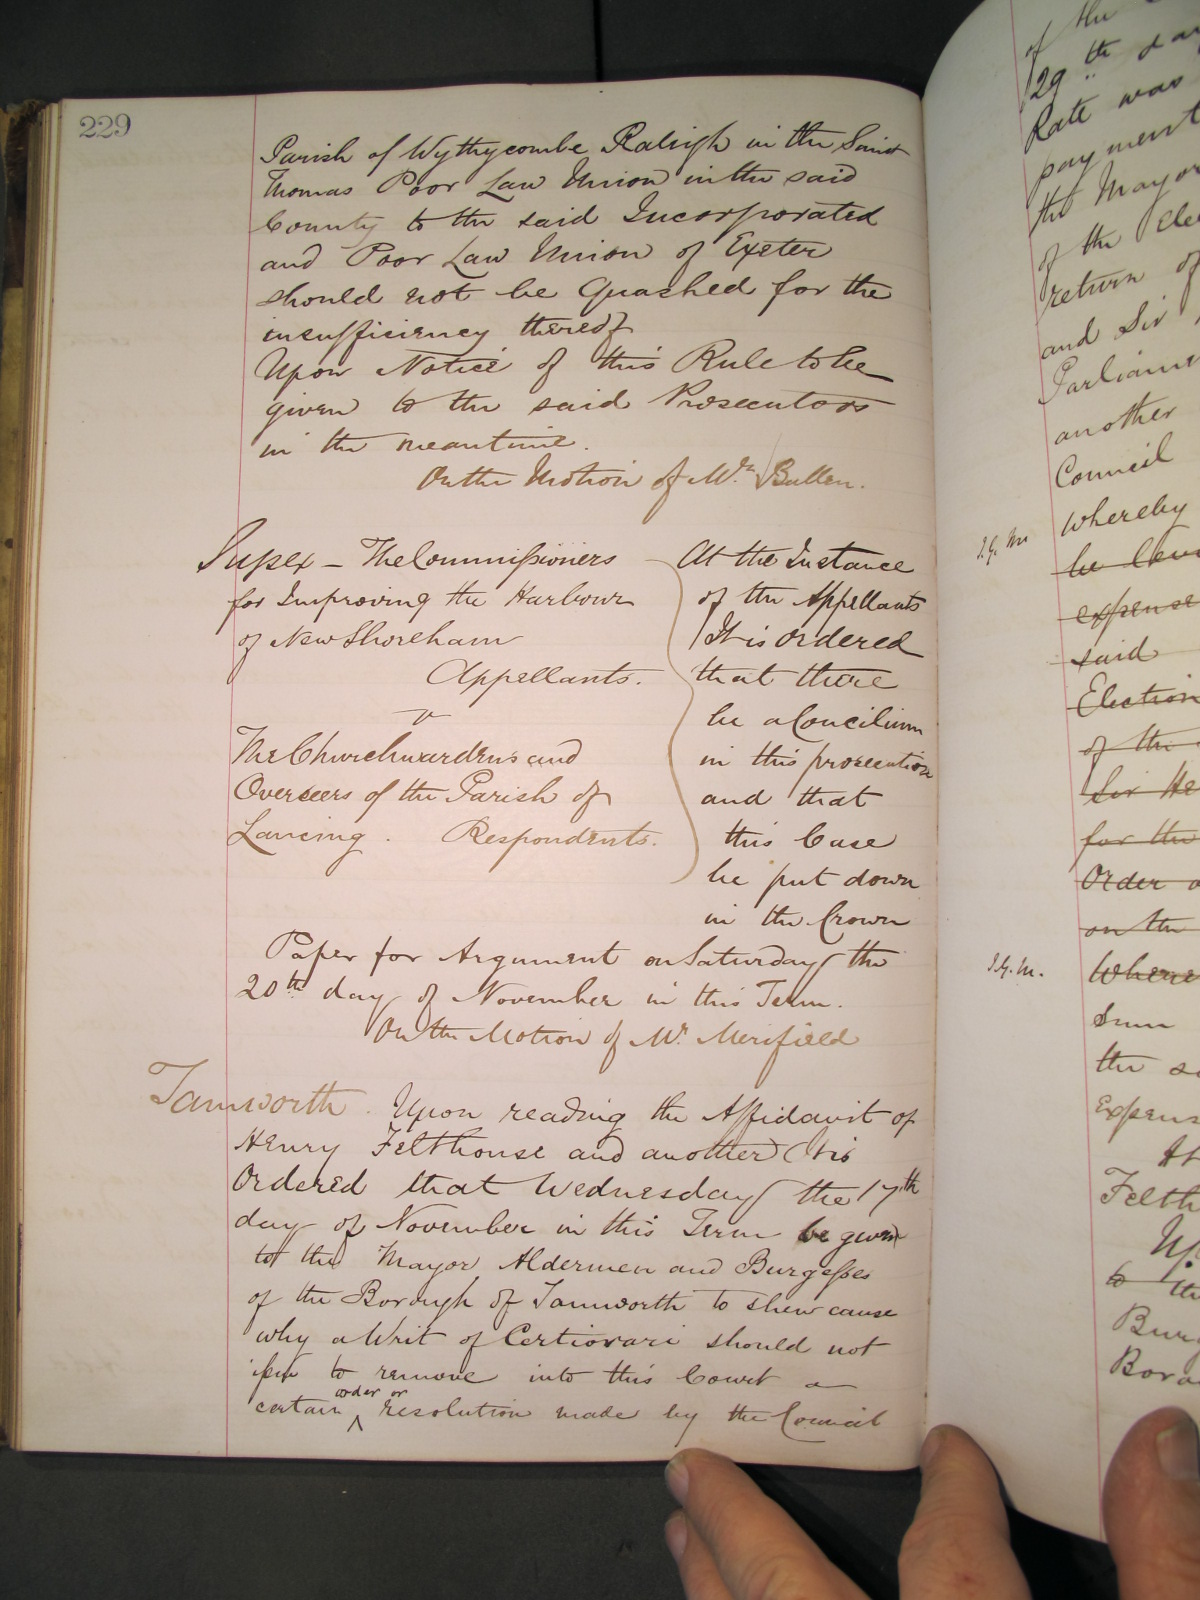 229
Parish of Wythycombe Raleigh in the Saint
Thomas Poor Law Union in the said
County to the said Incorporated
and Poor Law Union of Exeter
should not be Quashed for the
insufficiency thereof
Upon Notice of this Rule to be
given to the said Prosecutors
in the meantime.
On the Motion of Mr. Bullen.
Sussex – The Commissioners
for Improving the Harbour
of New Shoreham
Appellants.
v
The Churchwardens and
Overseers of the Parish of
Lancing. Respondents.
At the Instance
of the Appellants
It is ordered
that there
be a Concilium
in this prosecution
and that
this Case
be put down
in the Crown
Paper for Argument on Saturday the
20th day of November in this Term.
On the Motion of Mr. Merifield
Tamworth. Upon reading the Affidavit of
Henry Felthouse and another It is
Ordered that Wednesday the 17th
day of November in this Term be given
to the Mayor Aldermen and Burgesses
of the Borough of Tamworth to shew cause
why a Writ of Certiorari should not
issue to remove into this Court a
certain order or resolution made by the Council
of the
29th day
Rate was
payment
the Mayor
of the Ele
return of
and Sir
Parliamen
another
Council
J.G.M. whereby
be
expense
said
Election
of the
Sir He
for the
Order o
on the
J.G.M. Where
Sum
the sa
Expens
Felth
to the
Burg
Boro